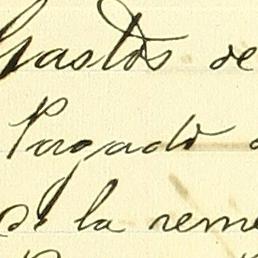 Gastos de
Pagado
de la reme